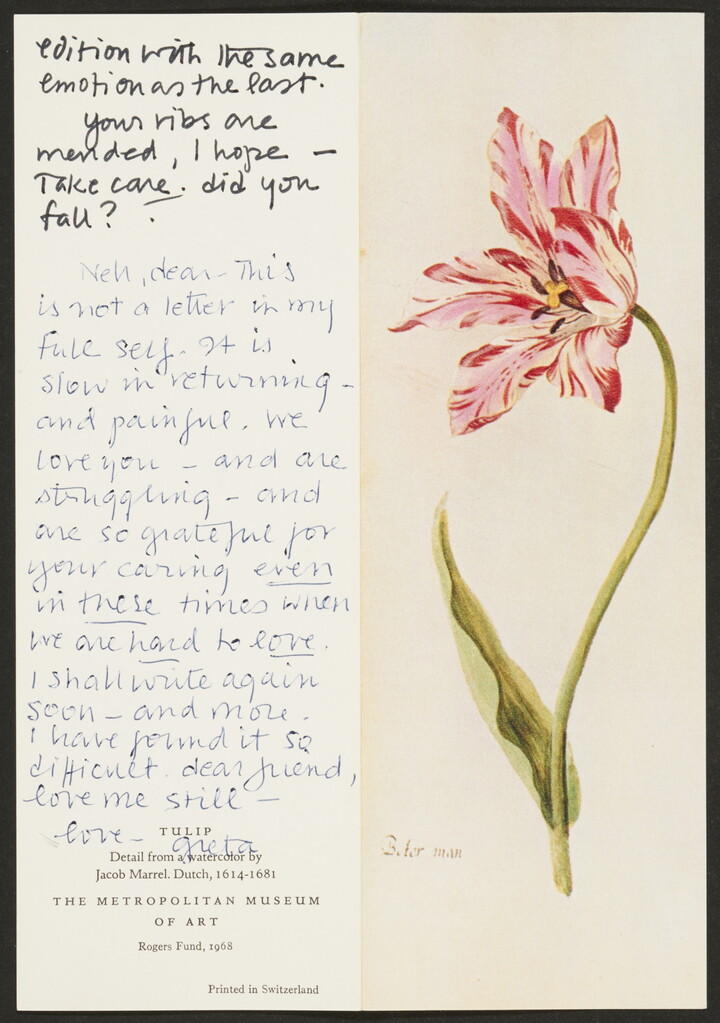 edition with the same
emotion as the last.
your ribs are
mended, I hope —
Take care. did you
fall?
Nell, dear — This
is not a letter in my
full self. It is
slow in returning —
and painful. We
love you — and are
struggling — and
are so grateful for
your caring even
in these times when
we are hard to love.
I shall write again
soon — and more.
I have found it so
difficult. dear friend,
love me still —
love — Greta
TULIP
Detail from a watercolor by
Jacob Marrel. Dutch, 1614-1681
THE METROPOLITAN MUSEUM
OF ART
Rogers Fund, 1968
Printed in Switzerland
man